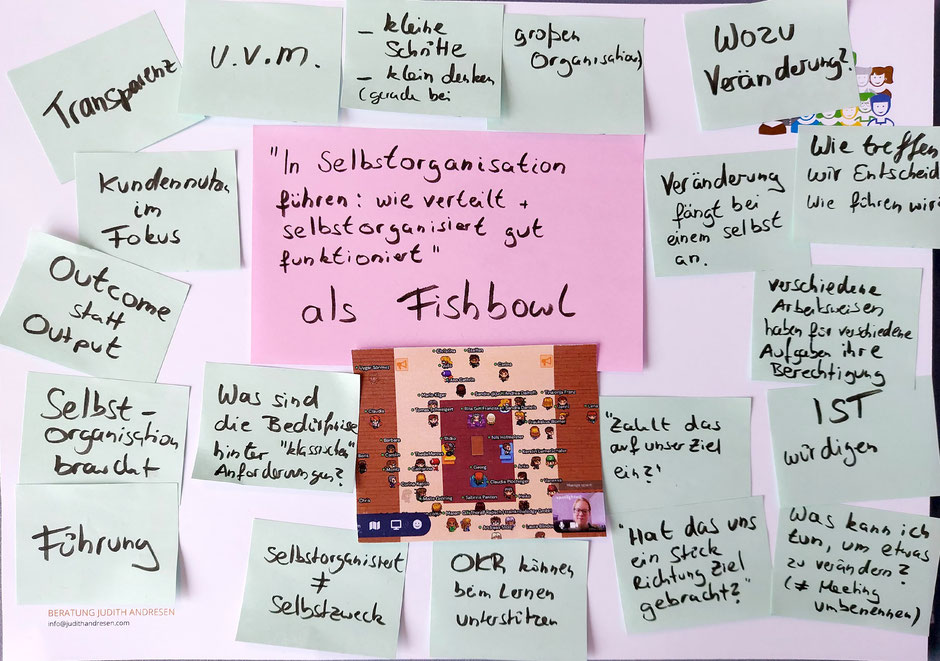 Transparenz
U.V.M.
- kleine
Schritte
- klein denken
(gerade bei
großen
Organisation)
Wozu
Veränderung?
Kundennutzen
im
Fokus
"In Selbstorganisation
führen: wie verteilt +
selbstorganisiert gut
funktioniert"
als Fishbowl
Veränderung
fängt bei
einem selbst
an.
Wie treffen
wir Entscheid
Wie führen wir
Outcome
statt
Output
verschiedene
Arbeitsweisen
haben für verschiedene
Aufgaben ihre
Berechtigung
Selbst-
Organisation
braucht
Führung
Was sind
die Bedürfnisse
hinter "klassischen"
Anforderungen?
Christine
Steffen
Carina
Claudia
Barbara
Thilo
Nils Hofmeister
Georg
Sabrina Panton
"Zahlt das
auf unser Ziel
ein?"
IST
würdigen
Selbstorganisiert
≠
Selbstzweck
OKR können
beim Lernen
unterstützen
"Hat das uns
ein Stück
Richtung Ziel
gebracht?"
Was kann ich
tun, um etwas
zu verändern?
(≠ Meeting
umbenennen)
BERATUNG JUDITH ANDRESEN
info@judithandresen.com